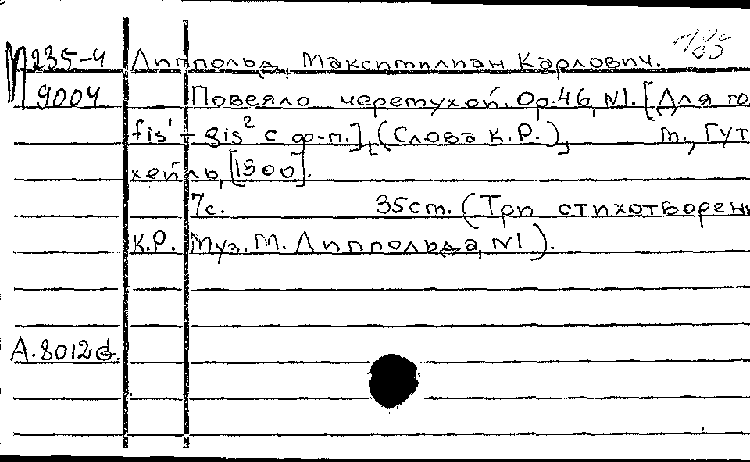 М235-4 Липпольд, Максимилиан Карлович.
9004 Повеяло черемухой. Ор.46, N1. [Для го
fis¹ - gis² с ф-п.], (Слова К.Р.), М., Гут
хейль, [1900].
7с. 35см. (Три стихотворен
К.Р. Муз. М. Липпольда, N1).
А.8012